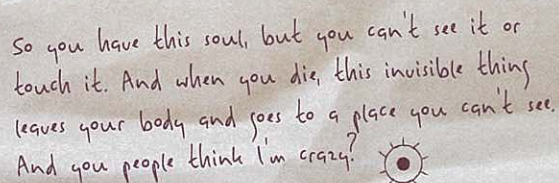 So you have this soul, but you can't see it or
touch it. And when you die, this invisible thing
leaves your body and goes to a place you can't see.
And you people think I'm crazy?